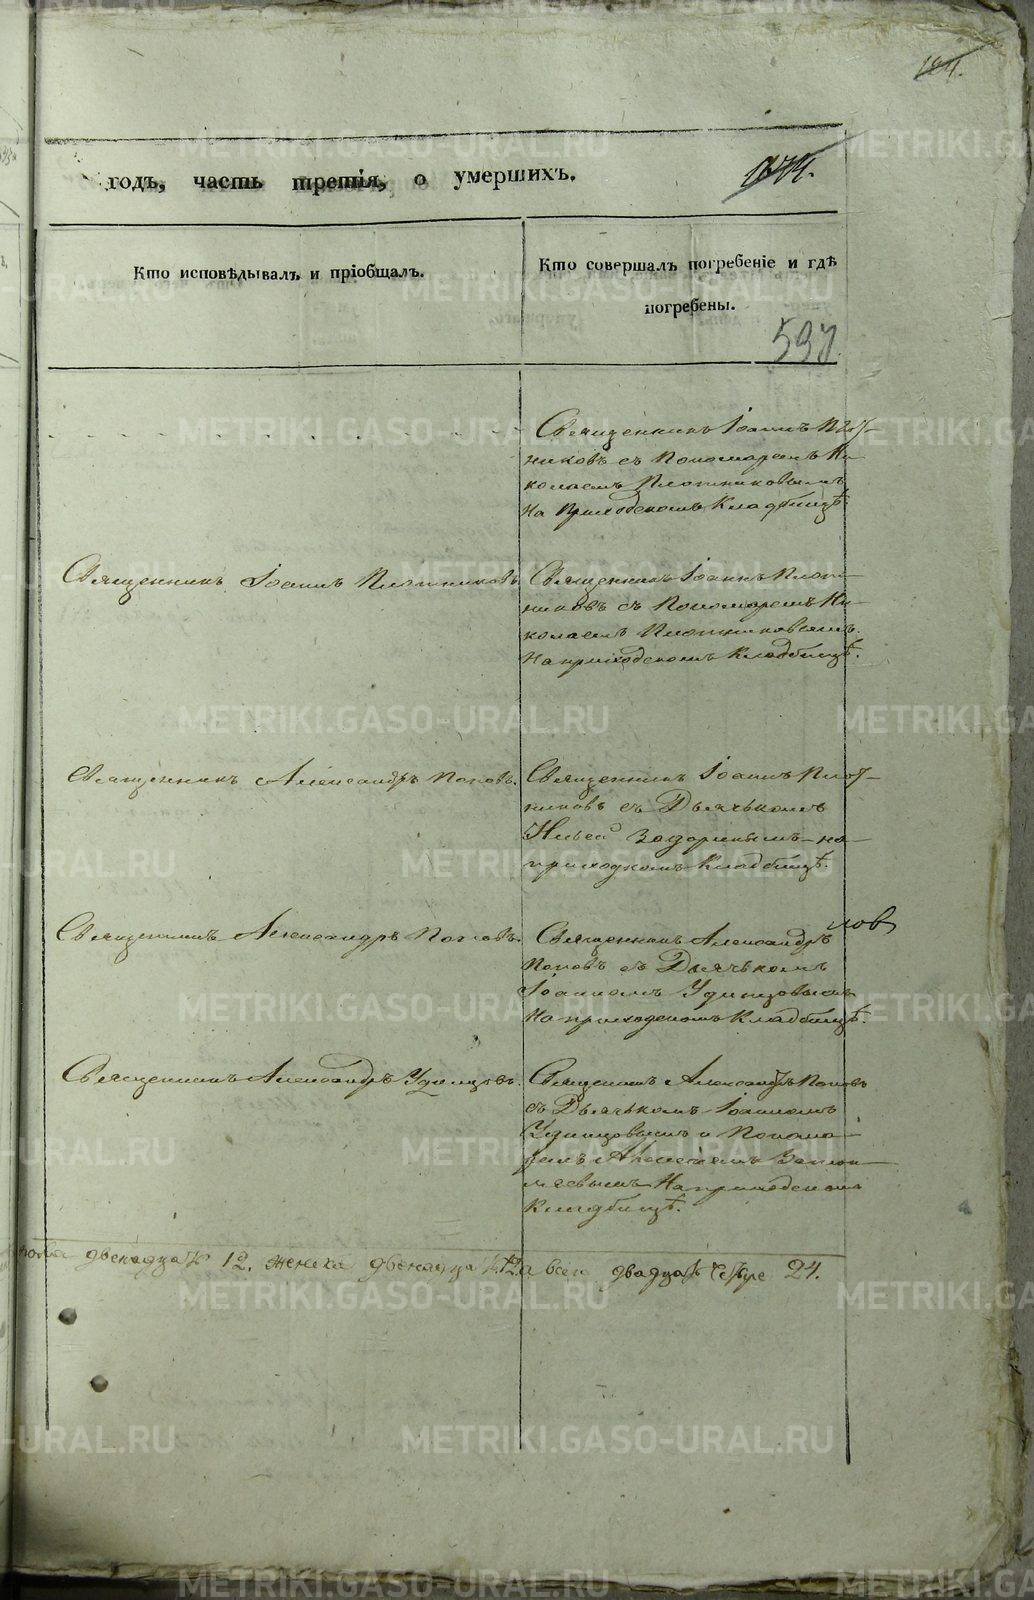 годъ, часть третія, о умершихъ.
Кто исповѣдывалъ и пріобщалъ.
Кто совершалъ погребеніе и гдѣ
погребены.
597
Священникъ Іоаннъ Плот-
никовъ съ Пономаремъ Ни-
колаемъ Плотниковымъ
На Приходскомъ Кладбищѣ.
Священникъ Іоаннъ Плотниковъ
Священникъ Іоаннъ Плот-
никовъ съ Пономаремъ Ни-
колаемъ Плотниковымъ.
На приходскомъ Кладбищѣ.
Священникъ Александръ Поповъ.
Священникъ Іоаннъ Плот-
никовъ съ Дьячькомъ
Ильей на
приходкомъ Кладбищѣ.
Священникъ Александръ Поповъ.
Священникъ Александръ
Поповъ съ Дьячькомъ
Іоанномъ Удинцовымъ
На приходскомъ Кладбищѣ.
Священникъ Александръ Удинцовъ.
Священникъ Александръ Поповъ
съ Дьячькомъ Іоанномъ
Удинцовымъ и Понома-
ремъ Алексеемъ
На приходскомъ
Кладбищѣ.
пола двенадцать 12. женска двенадцать 12. а всех двадцать четыре 24.
METRIKI.GASO-URAL.RU